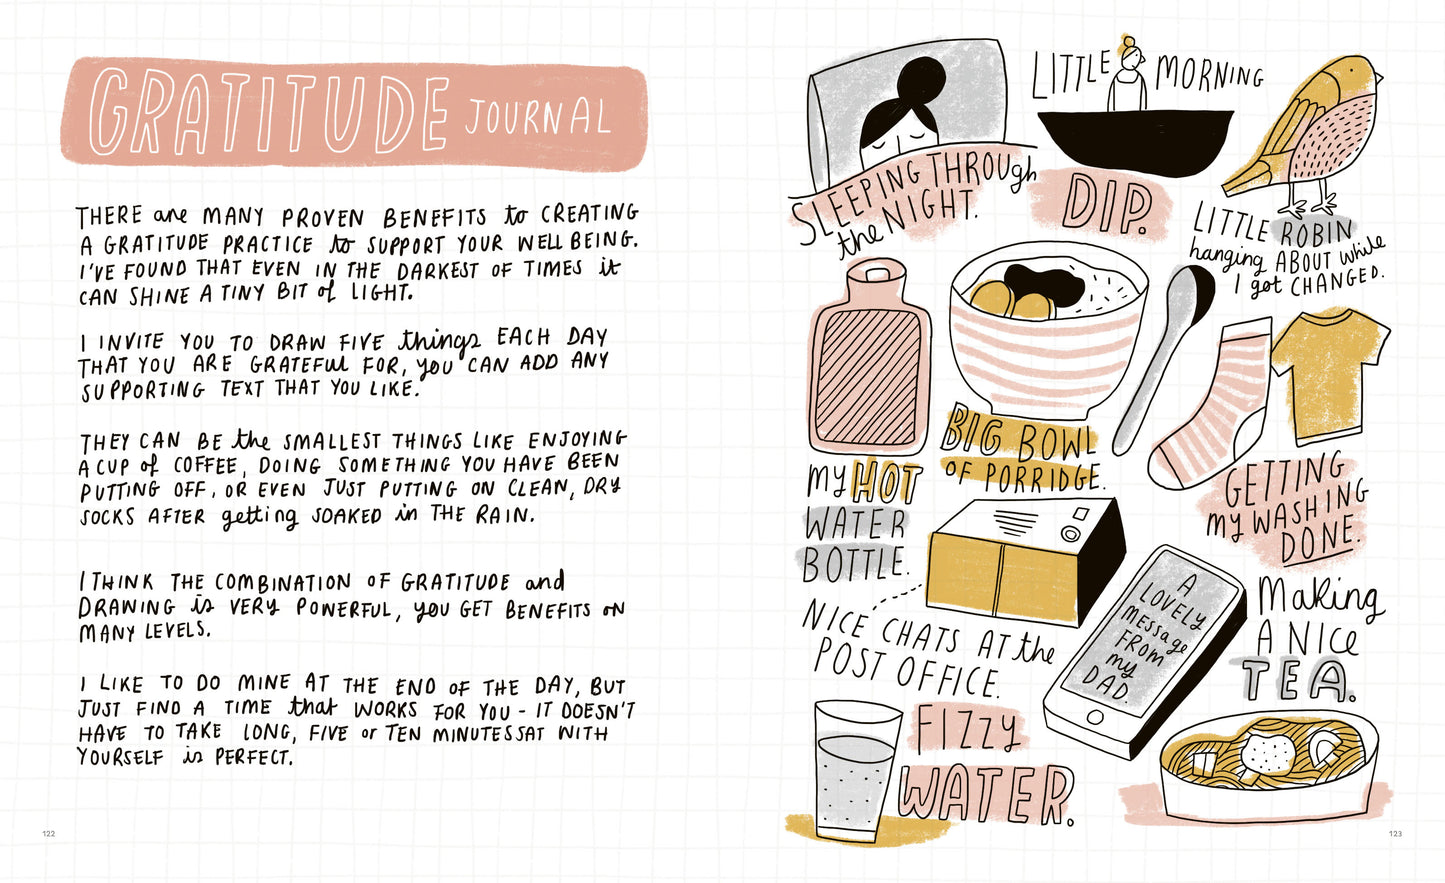 GRATITUDE JOURNAL
THERE are MANY PROVEN BENEFITS to CREATING
A GRATITUDE PRACTICE to SUPPORT YOUR WELL BEING.
I'VE FOUND THAT EVEN IN THE DARKEST OF TIMES it
CAN SHINE A TINY BIT of LIGHT.
I INVITE YOU TO DRAW FIVE things EACH DAY
THAT YOU ARE GRATEFUL FOR, you CAN ADD ANY
SUPPORTING TEXT THAT YOU LIKE.
THEY CAN BE the SMALLEST THINGS LIKE ENJOYING
A CUP of COFFEE, DOING SOMETHING YOU HAVE BEEN
PUTTING OFF, OR EVEN JUST PUTTING ON CLEAN, DRY
SOCKS AFTER getting SOAKED in THE RAIN.
I THINK THE COMBINATION OF GRATITUDE and
DRAWING is VERY POWERFUL, you GET BENEFITS ON
MANY LEVELS.
I LIKE TO DO MINE AT THE END OF THE DAY, BUT
JUST FIND A TIME that WORKS FOR YOU - IT DOESN'T
HAVE TO TAKE LONG, FIVE or TEN MINUTES SAT WITH
YOURSELF is PERFECT.
122
SLEEPING THROUGH
the NIGHT.
LITTLE MORNING
DIP.
LITTLE ROBIN
hanging ABOUT while
I got CHANGED.
my HOT
WATER
BOTTLE.
BIG BOWL
OF PORRIDGE.
GETTING
my WASHING
DONE.
NICE CHATS AT the
POST OFFICE.
A
LOVELY
MESSAGE
FROM
my
DAD.
Making
A NICE
TEA.
FIZZY
WATER.
123